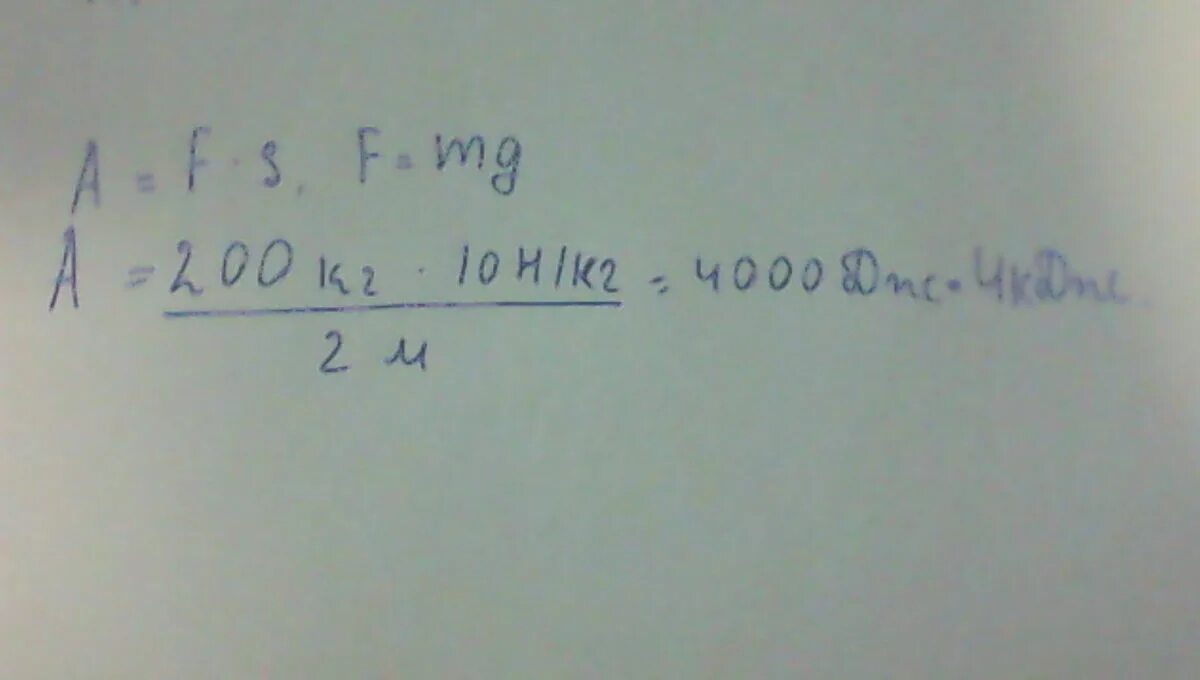 A = F · S, F = mg
A = 200 кг · 10 Н/кг = 4000 Дж = 4кДж.
2 м